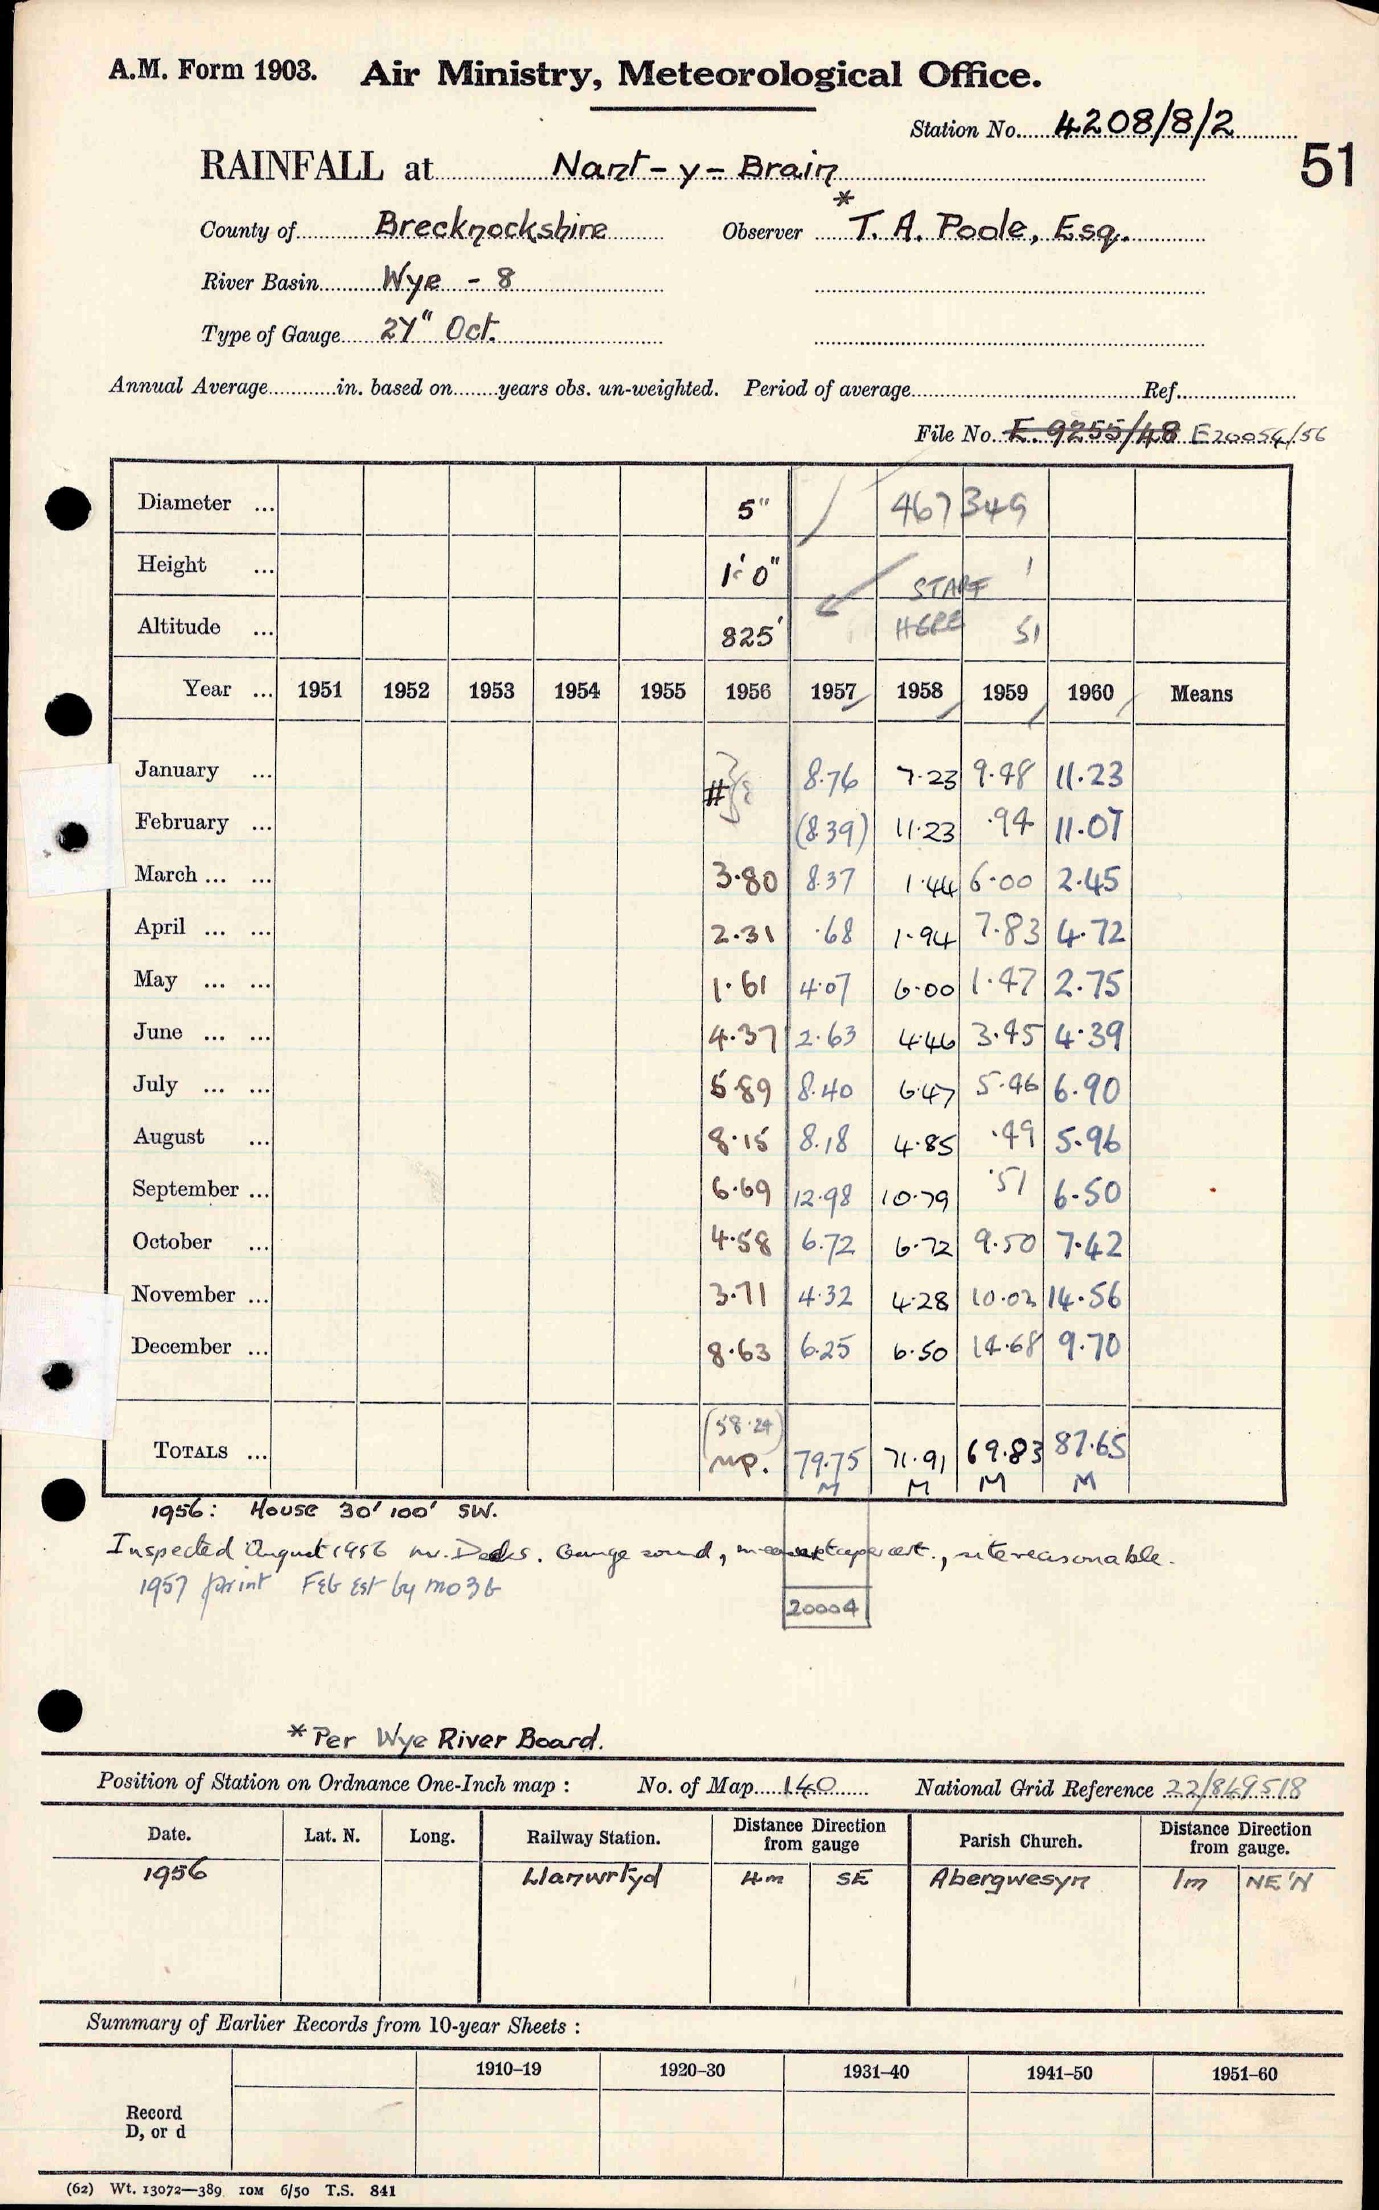 A.M. Form 1903. Air Ministry, Meteorological Office.
Station No. 4208/8/2
51
RAINFALL at Nant-y-Brain
County of Brecknockshire Observer * T. A. Poole, Esq.
River Basin Wye - 8
Type of Gauge 24" Oct.
Annual Average in. based on years obs. un-weighted. Period of average Ref.
File No. E. 9255/48 E20054/56
Diameter ... 5" 467349
Height ... 1' 0" START 1
Altitude ... 825' HERE 51
Year ... 1951 1952 1953 1954 1955 1956 1957 1958 1959 1960 Means
January ... # 8.76 7.23 9.48 11.23
February ... (8.39) 11.23 .94 11.07
March ... ... 3.80 8.37 1.44 6.00 2.45
April ... ... 2.31 .68 1.94 7.83 4.72
May ... ... 1.61 4.07 6.00 1.47 2.75
June ... ... 4.37 2.63 4.46 3.45 4.39
July ... ... 5.89 8.40 6.47 5.46 6.90
August ... 8.15 8.18 4.85 .49 5.96
September ... 6.69 12.98 10.79 .51 6.50
October ... 4.58 6.72 6.72 9.50 7.42
November ... 3.71 4.32 4.28 10.02 14.56
December ... 8.63 6.25 6.50 14.68 9.70
(58.24)
TOTALS ... 79.75 71.91 69.83 87.65
M M M M
1956: House 30' 100' SW.
Inspected August 1956 Mr. Gauge sound, site reasonable.
1957 print Feb Est by MO3b
20004
* Per Wye River Board.
Position of Station on Ordnance One-Inch map : No. of Map 140 National Grid Reference 22/849518
Date. Lat. N. Long. Railway Station. Distance Direction from gauge Parish Church. Distance Direction from gauge.
1956 Llanwrtyd 4m SE Abergwesyn 1m NE'N
Summary of Earlier Records from 10-year Sheets :
1910–19 1920–30 1931–40 1941–50 1951–60
Record
D, or d
(62) Wt. 13072—389 10M 6/50 T.S. 841